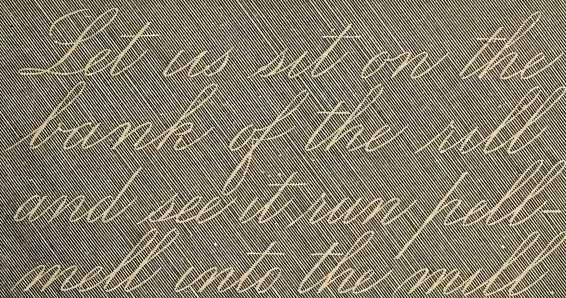 Let us sit on the
bank of the rill
and see it run pell-
mell into the mill